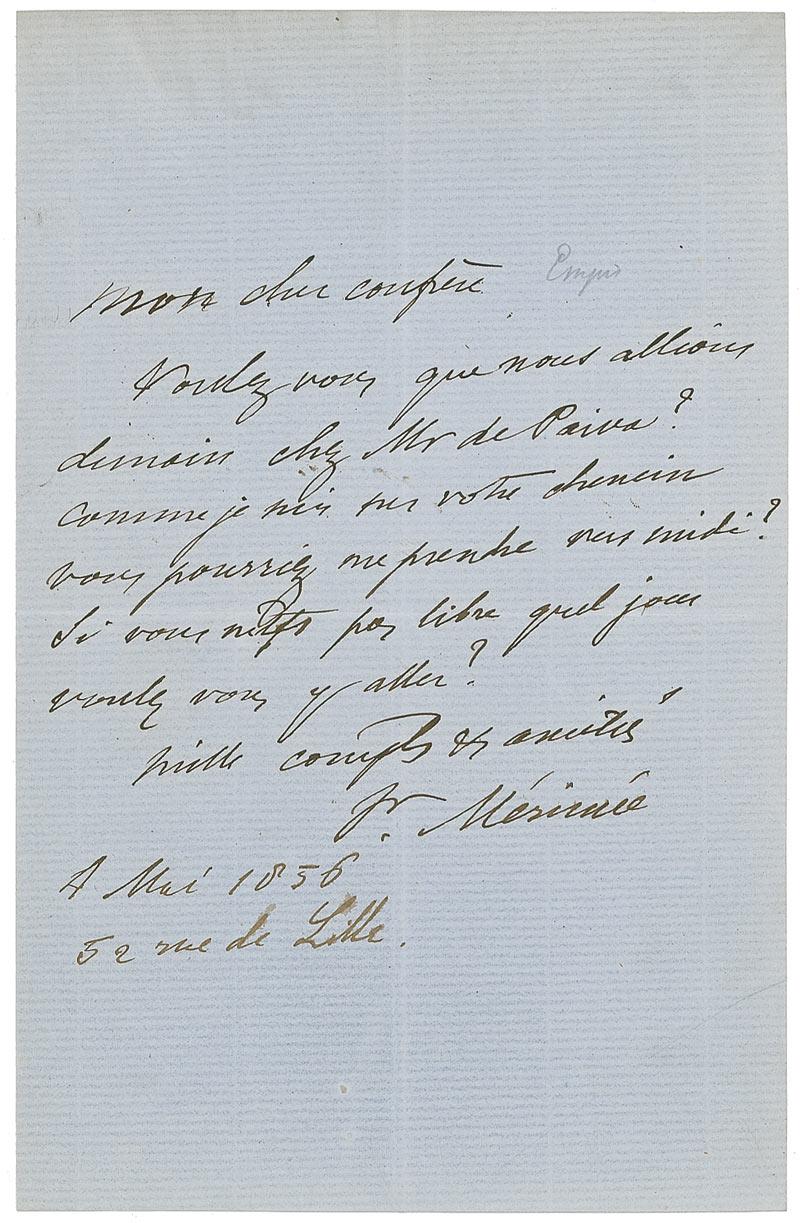 Empis
Mon cher confrère
Voulez vous que nous allions
demain chez Mr de Paiva?
comme je suis sur votre chemin
vous pourriez me prendre vers midi?
Si vous n'êtes pas libre quel jour
voulez vous y aller?
mille compls & amitiés
Pr Mérimée
4 Mai 1856
52 rue de Lille.